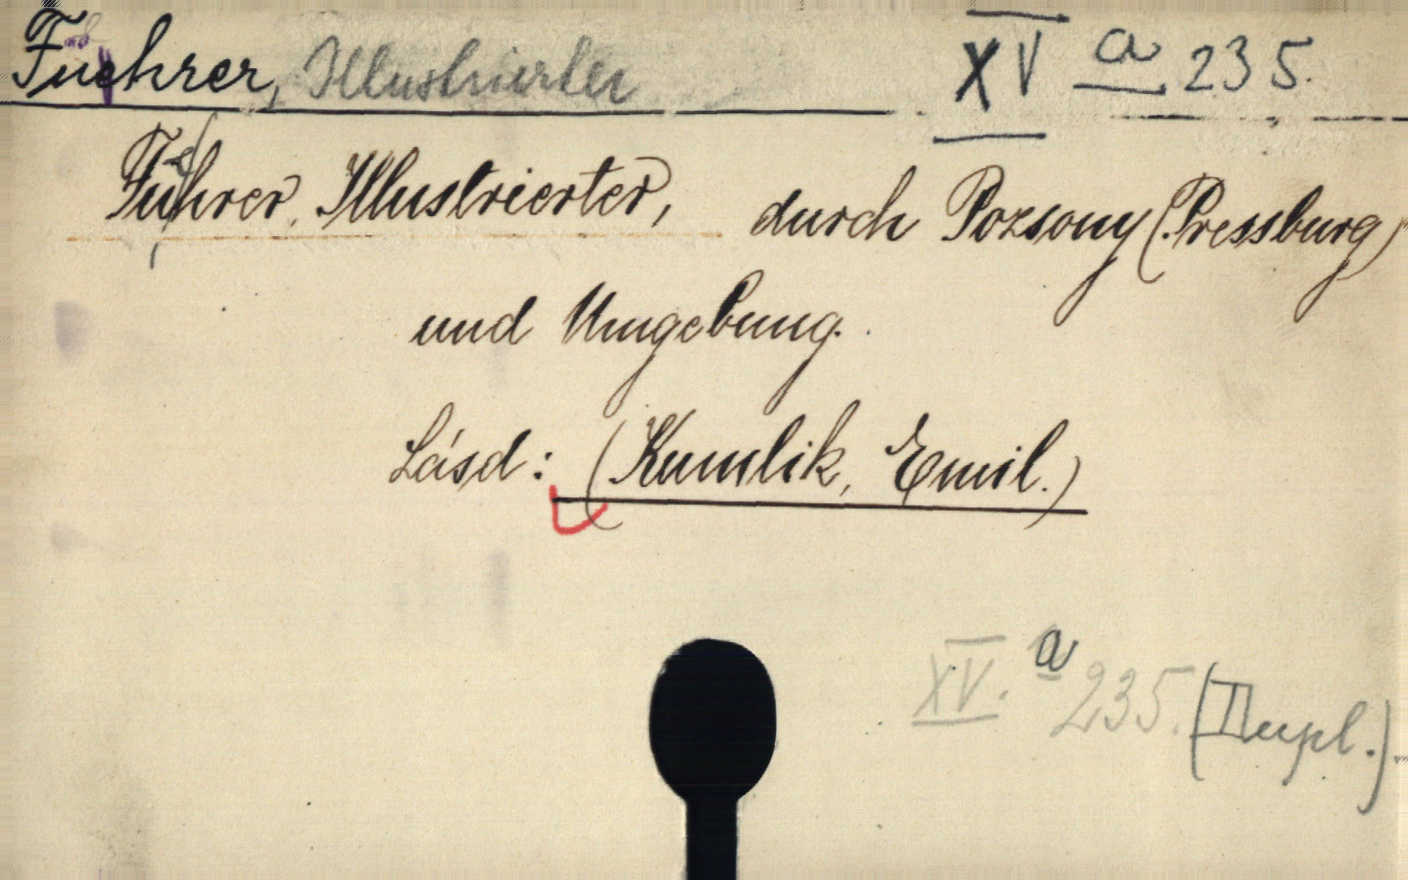 Fuehrer, Illustrierter XV a 235.
Fuehrer, Illustrierter, durch Pozsony (Pressburg)
und Umgebung.
Lásd: (Kumlik, Emil.)
XV. a 235. (Dupl.)